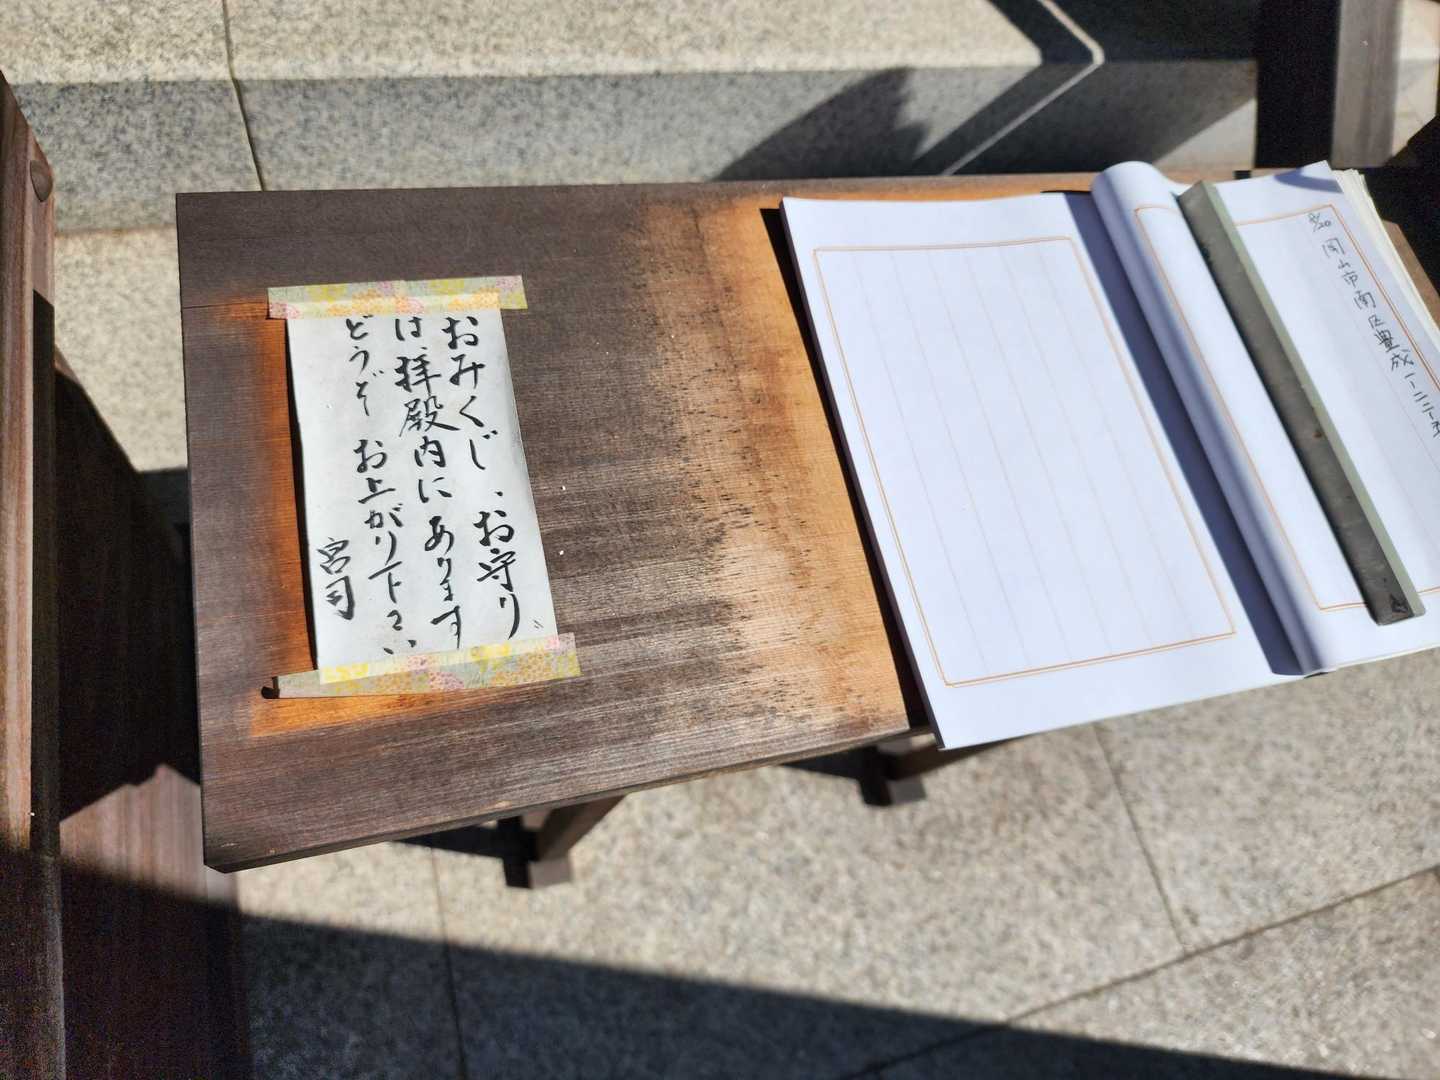 おみくじ、お守り
は、拝殿内にあります
どうぞ お上がり下さい
宮司
9/20 岡山市南区豊成一ー二二ー五